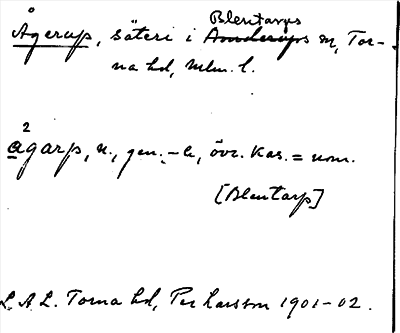 Blentarps
Ågerup, säteri i Anderups sn, Tor-
na hd, Mlm. l.
2
agarp, n., gen. -ɑ, övr. kas. = nom.
[Blentarp]
L.A.L. Torna hd, Per Larsson 1901-02.